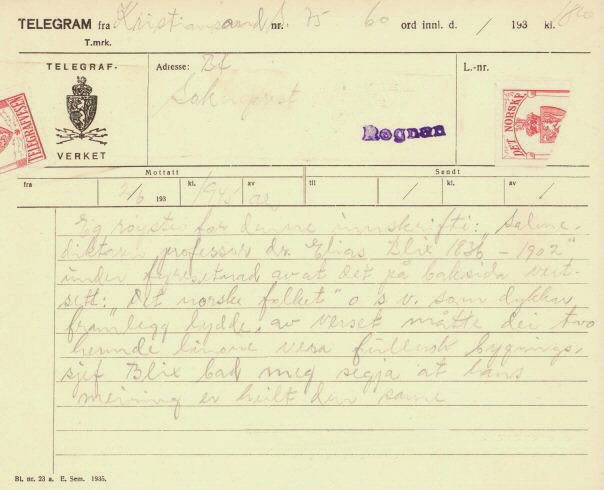 TELEGRAM fra Kristiansand S nr. 75 60 ord innl. d. / 193 kl. 1810
T.mrk.
TELEGRAF-
VERKET
Adresse: Bt
L.-nr.
Rognan
TELEGRAFVESEN
DET NORSKE
Mottatt Sendt
fra 2/6 193 kl. 1945 av til / kl. av /
Eg røyster for denne innskrifti: "Salme-
diktaren professor dr. Elias Blix 1836 – 1902"
under fyresetnad av at det på baksida vert
sett: "Det norske folket" o s v. som dykkar
framlegg lydde. av verset måtte dei two
linone vera fullnok bygnings,
sjef Blix bad meg segja at hans
meining er heilt den same
Bl. nr. 23 a. E. Sem. 1935.